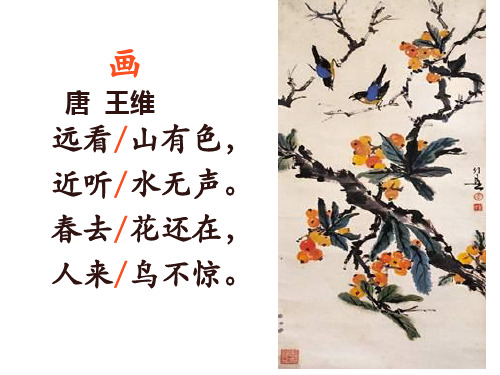 画
唐 王维
远看/山有色，
近听/水无声。
春去/花还在，
人来/鸟不惊。